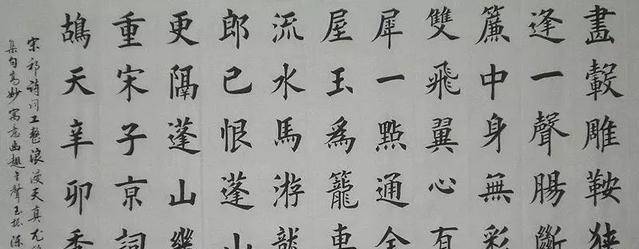 畫轂雕鞍狹
逢一聲腸斷
簾中身無彩
雙飛翼心有
犀一點通金
屋玉爲籠車
流水馬游龍
郎已恨蓬山
更隔蓬山幾
重宋子京詞
鴣天辛卯
宋祁詩詞工整浪漫天真尤
集句高妙寓意幽趣聲玉振